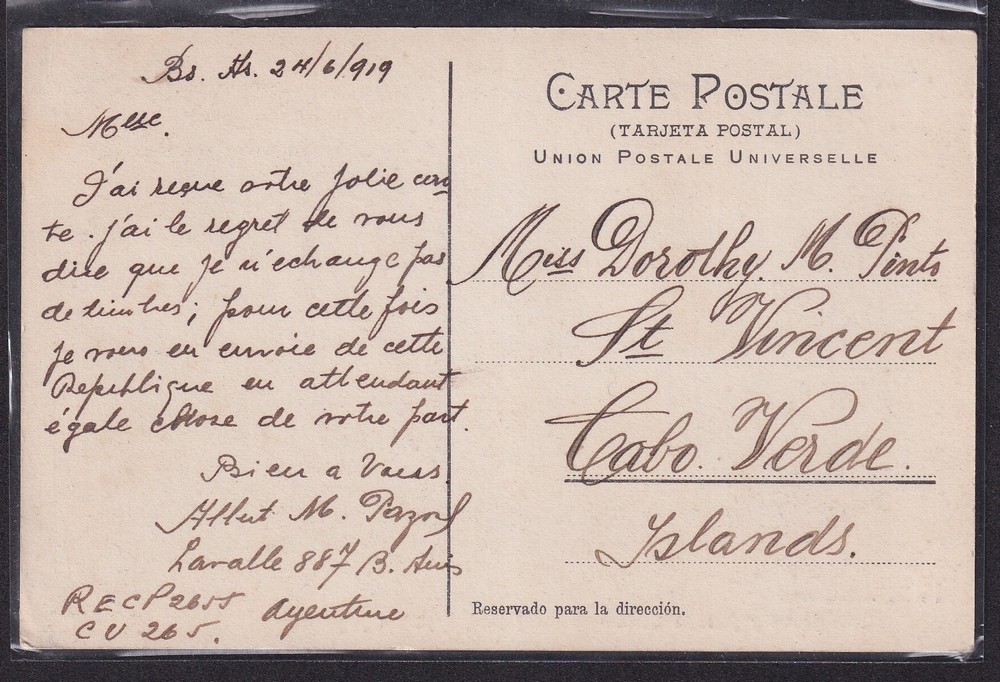 Bs. As. 24/6/919
Melle.
J'ai reçue votre jolie car
te. j'ai le regret de vous
dire que je n'echange pas
de timbres; pour cette fois
je vous en envoie de cette
Republique en attendant
égale chose de votre part.
Bien a Vous.
Albert M.
Lavalle 887 B. Aires
Argentine
RECP 2655
CU 265.
CARTE POSTALE
(TARJETA POSTAL)
UNION POSTALE UNIVERSELLE
Miss Dorothy. M. Pinto
St Vincent
Cabo. Verde.
Islands.
Reservado para la dirección.